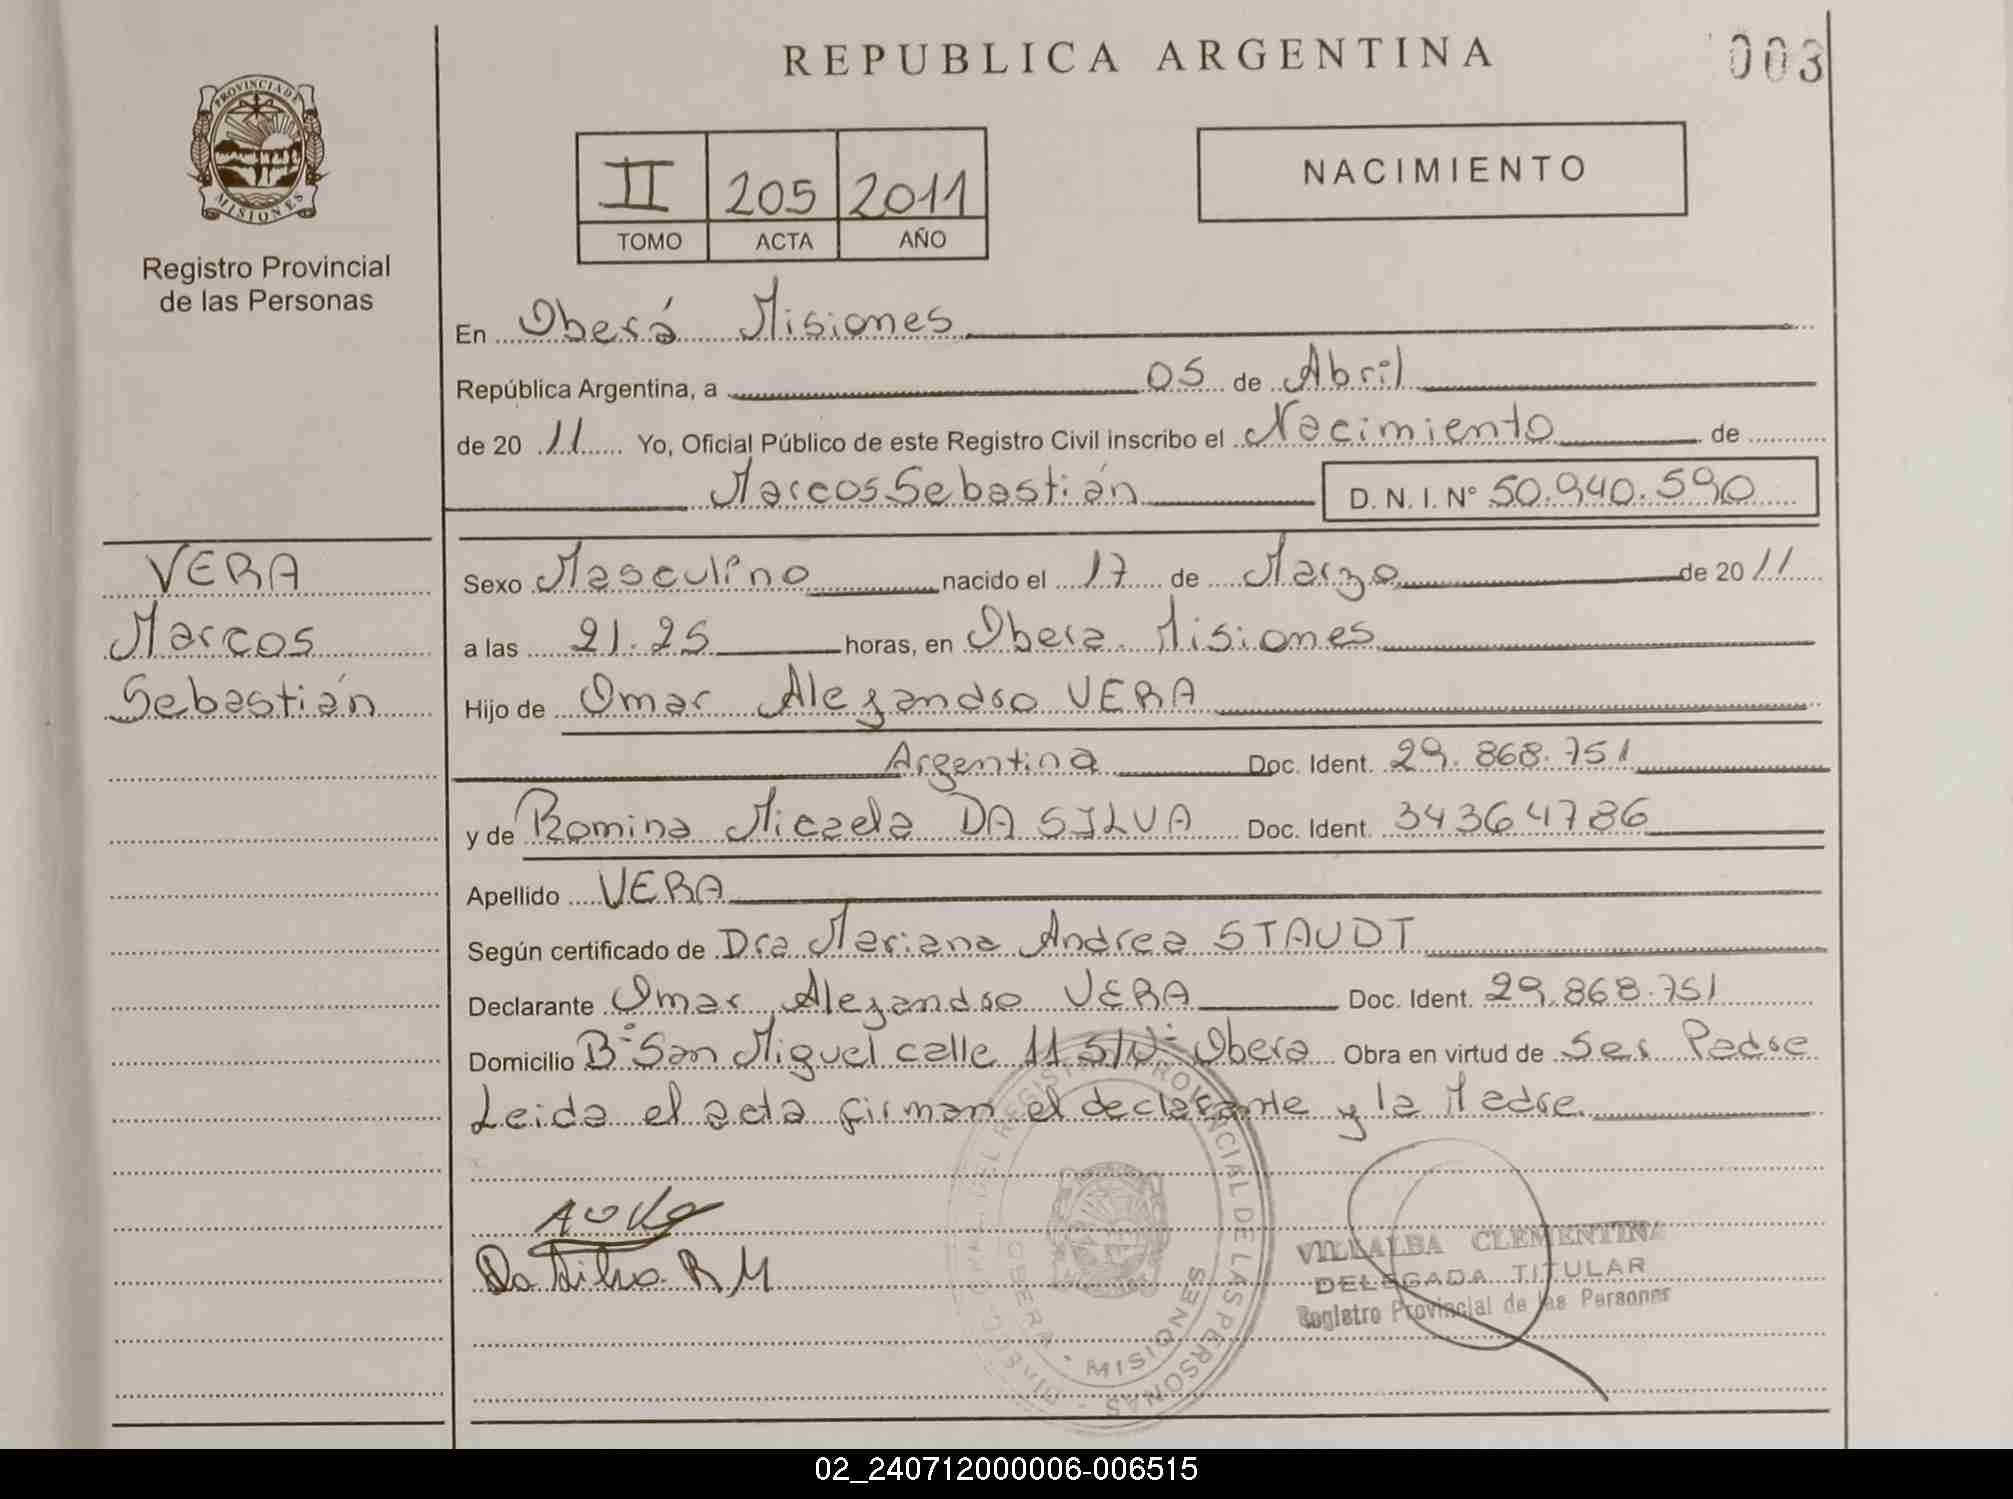 REPUBLICA ARGENTINA
003
PROVINCIA DE MISIONES
Registro Provincial
de las Personas
II 205 2011
TOMO ACTA AÑO
NACIMIENTO
En Oberá Misiones
República Argentina, a 05 de Abril
de 20 11 Yo, Oficial Público de este Registro Civil inscribo el Nacimiento de
Marcos Sebastián D. N. I. N° 50.940.590
VERA
Marcos
Sebastián
Sexo Masculino nacido el 17 de Marzo de 20 11
a las 21.25 horas, en Obera Misiones
Hijo de Omar Alejandro VERA
Argentina Doc. Ident. 29.868.751
y de Romina Micaela DA SILVA Doc. Ident. 34364786
Apellido VERA
Según certificado de Dra Mariana Andrea STAUDT
Declarante Omar Alejandro VERA Doc. Ident. 29.868.751
Domicilio B° San Miguel calle 11 S/N° Obera Obra en virtud de Ser Padre
Leida el acta firman el declarante y la Madre
Da Silva R M
REGISTRO PROVINCIAL DE LAS PERSONAS
OBERA - MISIONES
VILLALBA CLEMENTINA
DELEGADA TITULAR
Registro Provincial de las Personas
02_240712000006-006515